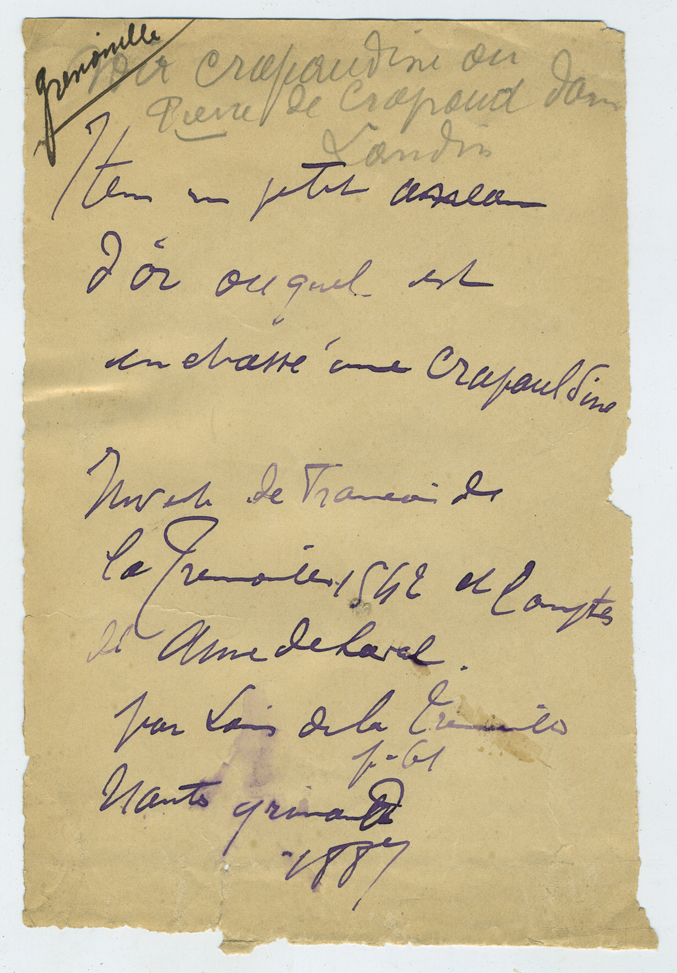 grenouille
Voir crapaudine ou
Pierre de Crapaud dans
Landrin
Item un petit anneau
d'or ouquel est
enchassé une Crapauldine
Invent de Francois de
la Tremoille 1542 et Comptes
de Anne de Laval.
par Louis de la Tremoille
p. 61
Nantes grimaud
1887